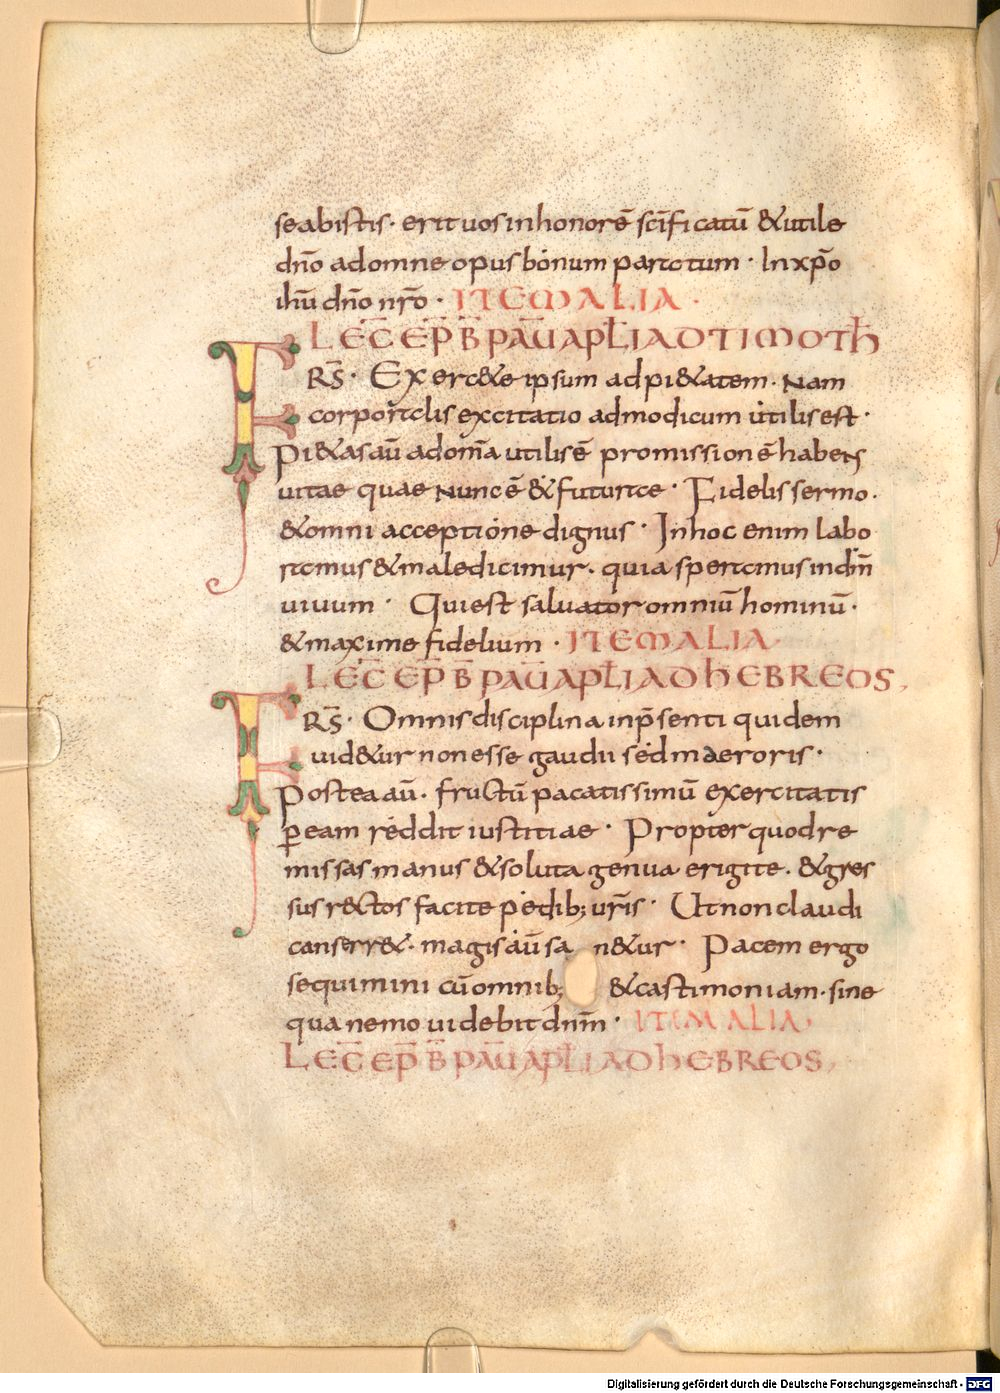 se ab istis · erit uos in honorē sc̄ificatū & utile
dn̄o ad omne opus bonum paratum · In xp̄o
ih̄u dn̄o nr̄o · ITEM ALIA ·
LEC̄ EP̄ B̄ PAU̅ APL̄I AD TIMOTH̄
FRS̄ · Exerc&e ipsum ad pi&atem · Nam
corporalis excitatio ad modicum utilis est ·
Pi&as au̅ ad om̄a utilis ē promissionē habens
uitae quae nunc ē & futurae · Fidelis sermo ·
& omni acceptione dignus · In hoc enim labo
ramus & maledicimur · quia speramus in dm̄
uiuum · Qui est saluator omniū hominū ·
& maxime fidelium · ITEM ALIA
LEC̄ EP̄ B̄ PAU̅ APL̄I AD HEBREOS,
FRS̄ · Omnis disciplina in p̄senti quidem
uid&ur non esse gaudii sed maeroris ·
Postea au̅ · fructū pacatissimū exercitatis
ꝑ eam reddit iustitiae · Propter quod re
missas manus & soluta genua erigite · & gres
sus rectos facite pedib; ur̄is · Ut non claudi
cans err& · magis au̅ san&ur · Pacem ergo
sequimini cū omnib; & castimoniam · sine
qua nemo uidebit dnm̄ · ITEM ALIA,
LEC̄ EP̄ B̄ PAU̅ APL̄I AD HEBREOS,
Digitalisierung gefördert durch die Deutsche Forschungsgemeinschaft - DFG